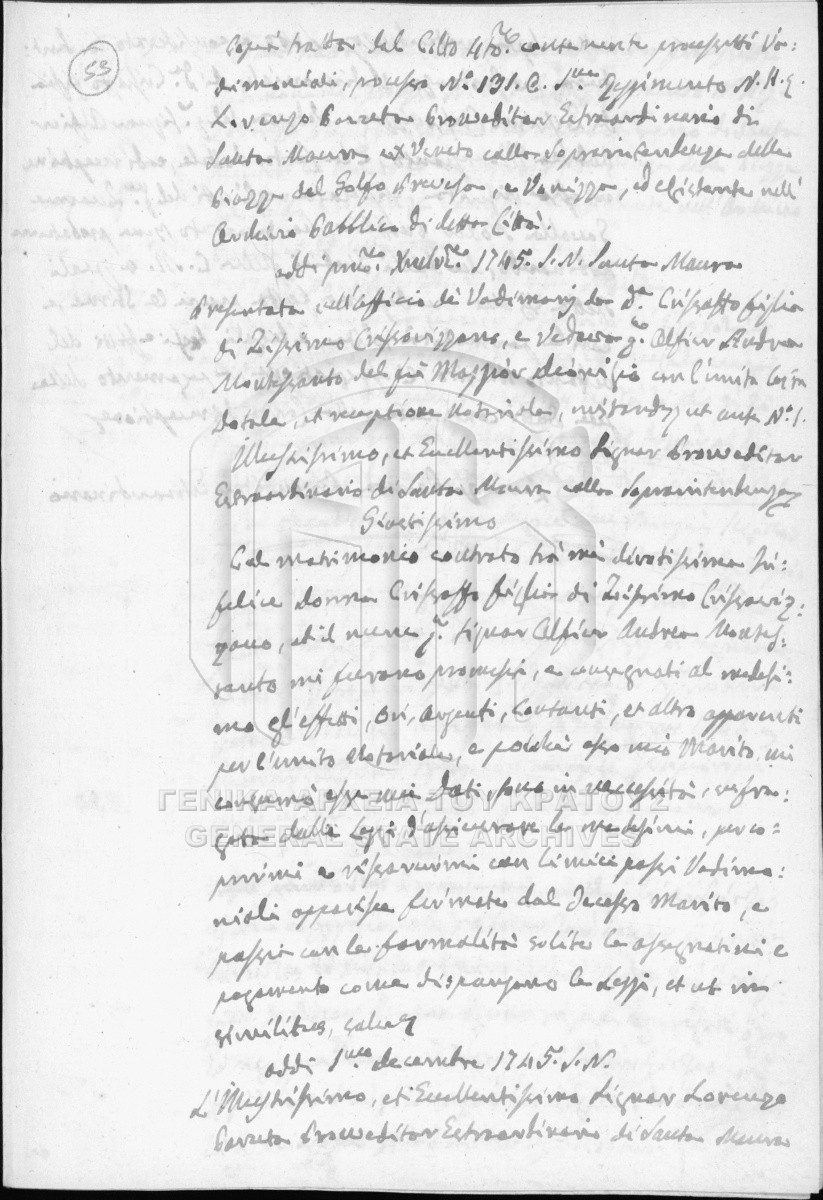 53
Copia tratta dal Colto 4to. contenente processetti Va=
dimoniali, processo No. 131. C. Reggimento N. H. E.
Lorenzo Barretta Proveditor Estraordinario di
Santa Maura ex Veneto colla Sopraintendenza della
Piazza dal Golfo Prevesa, e Vonizza, ed esistente nell'
Archivio Pubblico di detta Città
addi primo Xmbre. 1745. S. N. Santa Maura
Presentata nell'officio de Vadimonj da Da. Crisaffo figlia
di Zissimo Crissovizzano, e Vedova qm. Alfier Andrea
Montesanto del fu Maggior Dionisio con l'unita
Dotale, et receptione Notariale, ut ante No. 1.
Illustrissimo, et Eccellentissimo Signor Proveditor
Estraordinario di Santa Maura colla Sopraintendenza
Giustissimo
Col matrimonio contrato trà mè divotissima in=
felice donna Crisaffo figlia di Zissimo Crissoviz=
zano, et il qm. Signor Alfier Andrea Montes=
santo mi furono promessi, e consegnati al medesi=
mo gl'effetti, Ori, Argenti, Contanti, et altro apparenti
per l'unito Notariale, e poichè esso mio Marito mi
consumò essi miei Dati, sono in necessità,
dalle Leggi d'assicurare le medesimi, perco=
e con li miei passi Vadimo=
niali apparisca firmato dal Decesso Marito, e
passi con le formalità solite le assegnationi e
pagamento come dispongono le Leggi, et ut in
similibus, salvis
addi decembre 1745. S. N.
L'Illustrissimo, et Eccellentissimo Signor Lorenzo
Barretta Proveditor Estraordinario di Santa Maura
ΓΕΝΙΚΑ ΑΡΧΕΙΑ ΤΟΥ ΚΡΑΤΟΥΣ
GENERAL STATE ARCHIVES